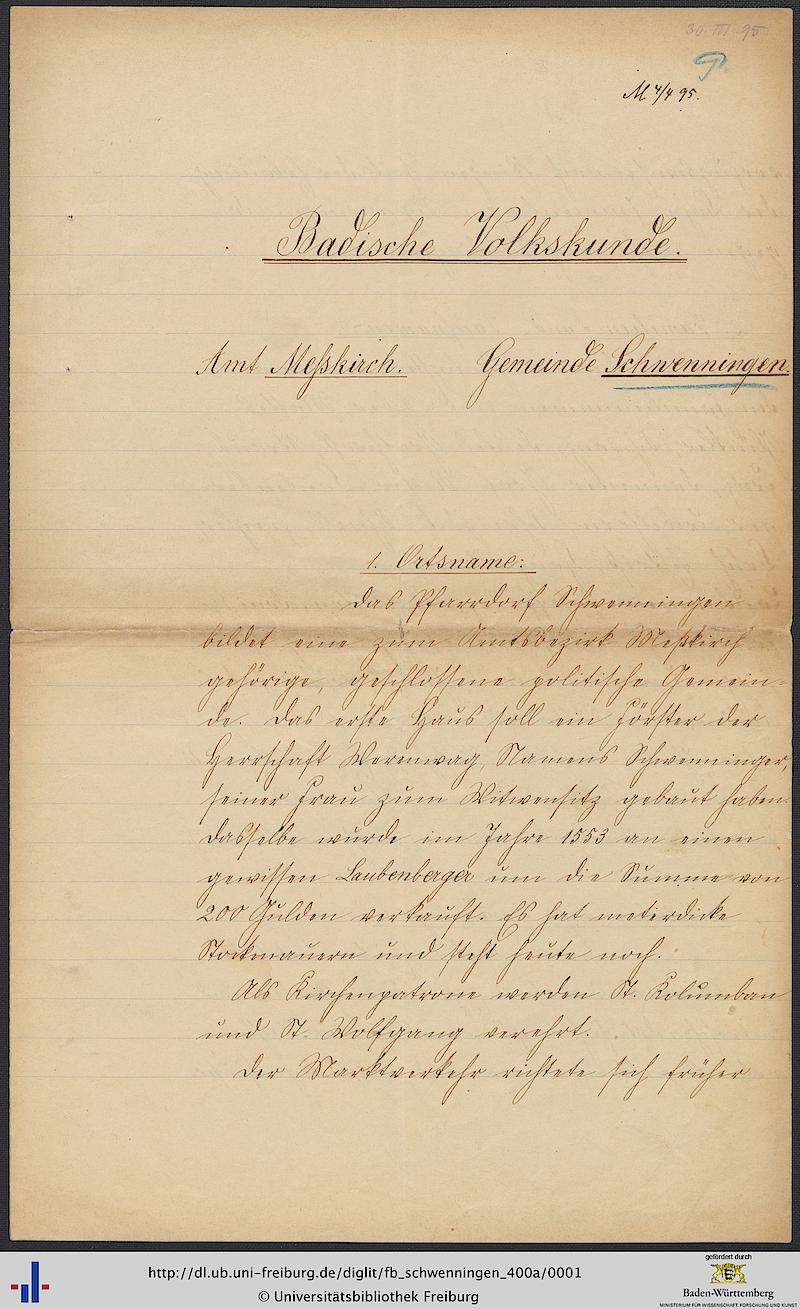 30. III. 95
M 4/4 95.
Badische Volkskunde.
Amt Meßkirch. Gemeinde Schwenningen.
1. Ortsname:
Das Pfarrdorf Schwenningen
bildet eine zum Amtsbezirk Meßkirch
gehörige, geschlossene politische Gemein-
de. Das erste Haus soll ein Förster der
Herrschaft Werenwag, Namens Schwenninger,
seiner Frau zum Witwensitz gebaut haben.
Dasselbe wurde im Jahre 1553 an einen
gewissen Laubenberger um die Summe von
200 Gulden verkauft. Es hat meterdicke
Stockmauern und steht heute noch.
Als Kirchenpatrone werden St. Kolumban
und St. Wolfgang verehrt.
Der Marktverkehr richtete sich früher
http://dl.ub.uni-freiburg.de/diglit/fb_schwenningen_400a/0001
© Universitätsbibliothek Freiburg
gefördert durch
Baden-Württemberg
MINISTERIUM FÜR WISSENSCHAFT, FORSCHUNG UND KUNST